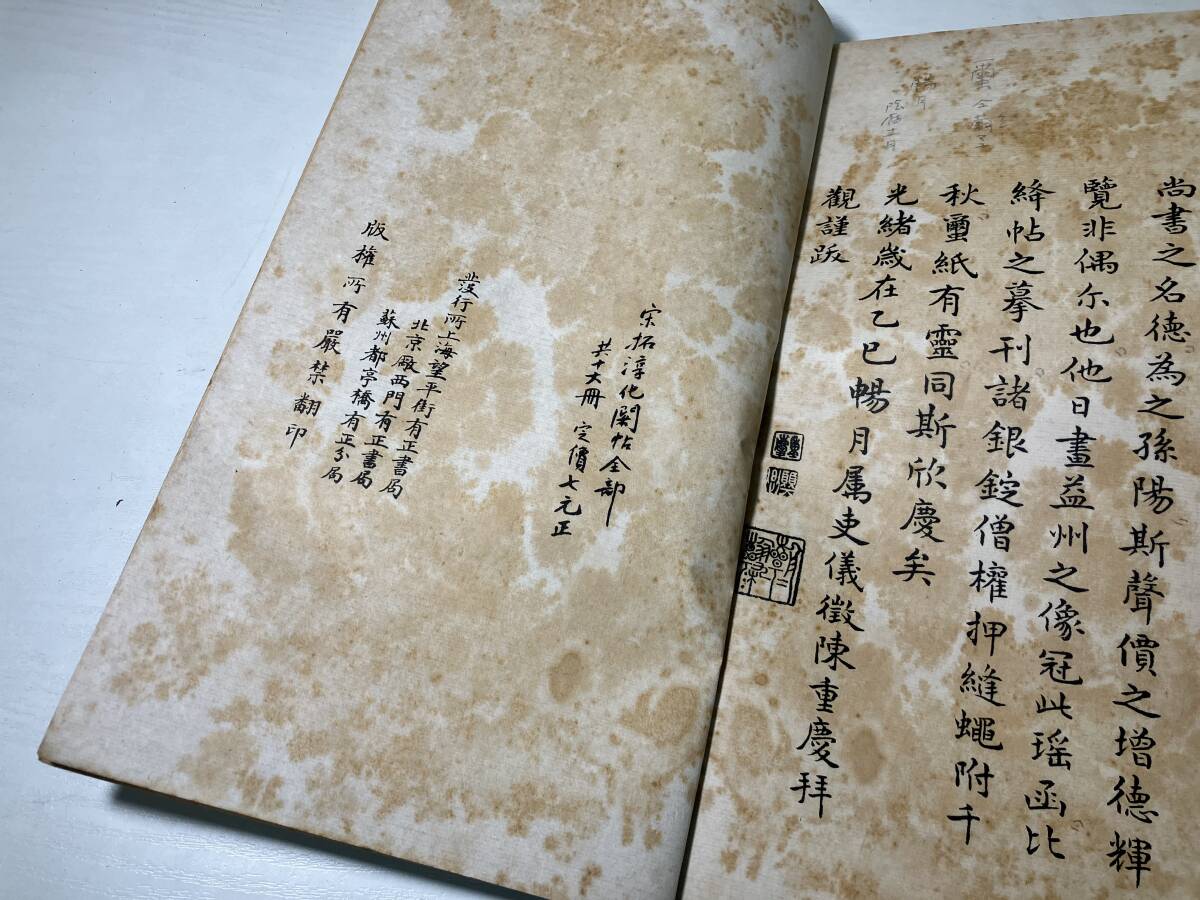 尚書之名德為之孫陽斯聲價之增德輝
覽非偶尒也他日畫益州之像冠此瑶函比
絳帖之摹刊諸銀錠僧權押縫蠅附千
秋蠒紙有靈同斯欣慶矣
光緒歲在乙巳暢月属吏儀徵陳重慶拜
觀謹跋
暢月
宋拓淳化閣帖全部
共十大冊 定價七元正
發行所上海望平街有正書局
北京廠西門有正書局
蘇州都亭橋有正分局
版權所有嚴禁翻印